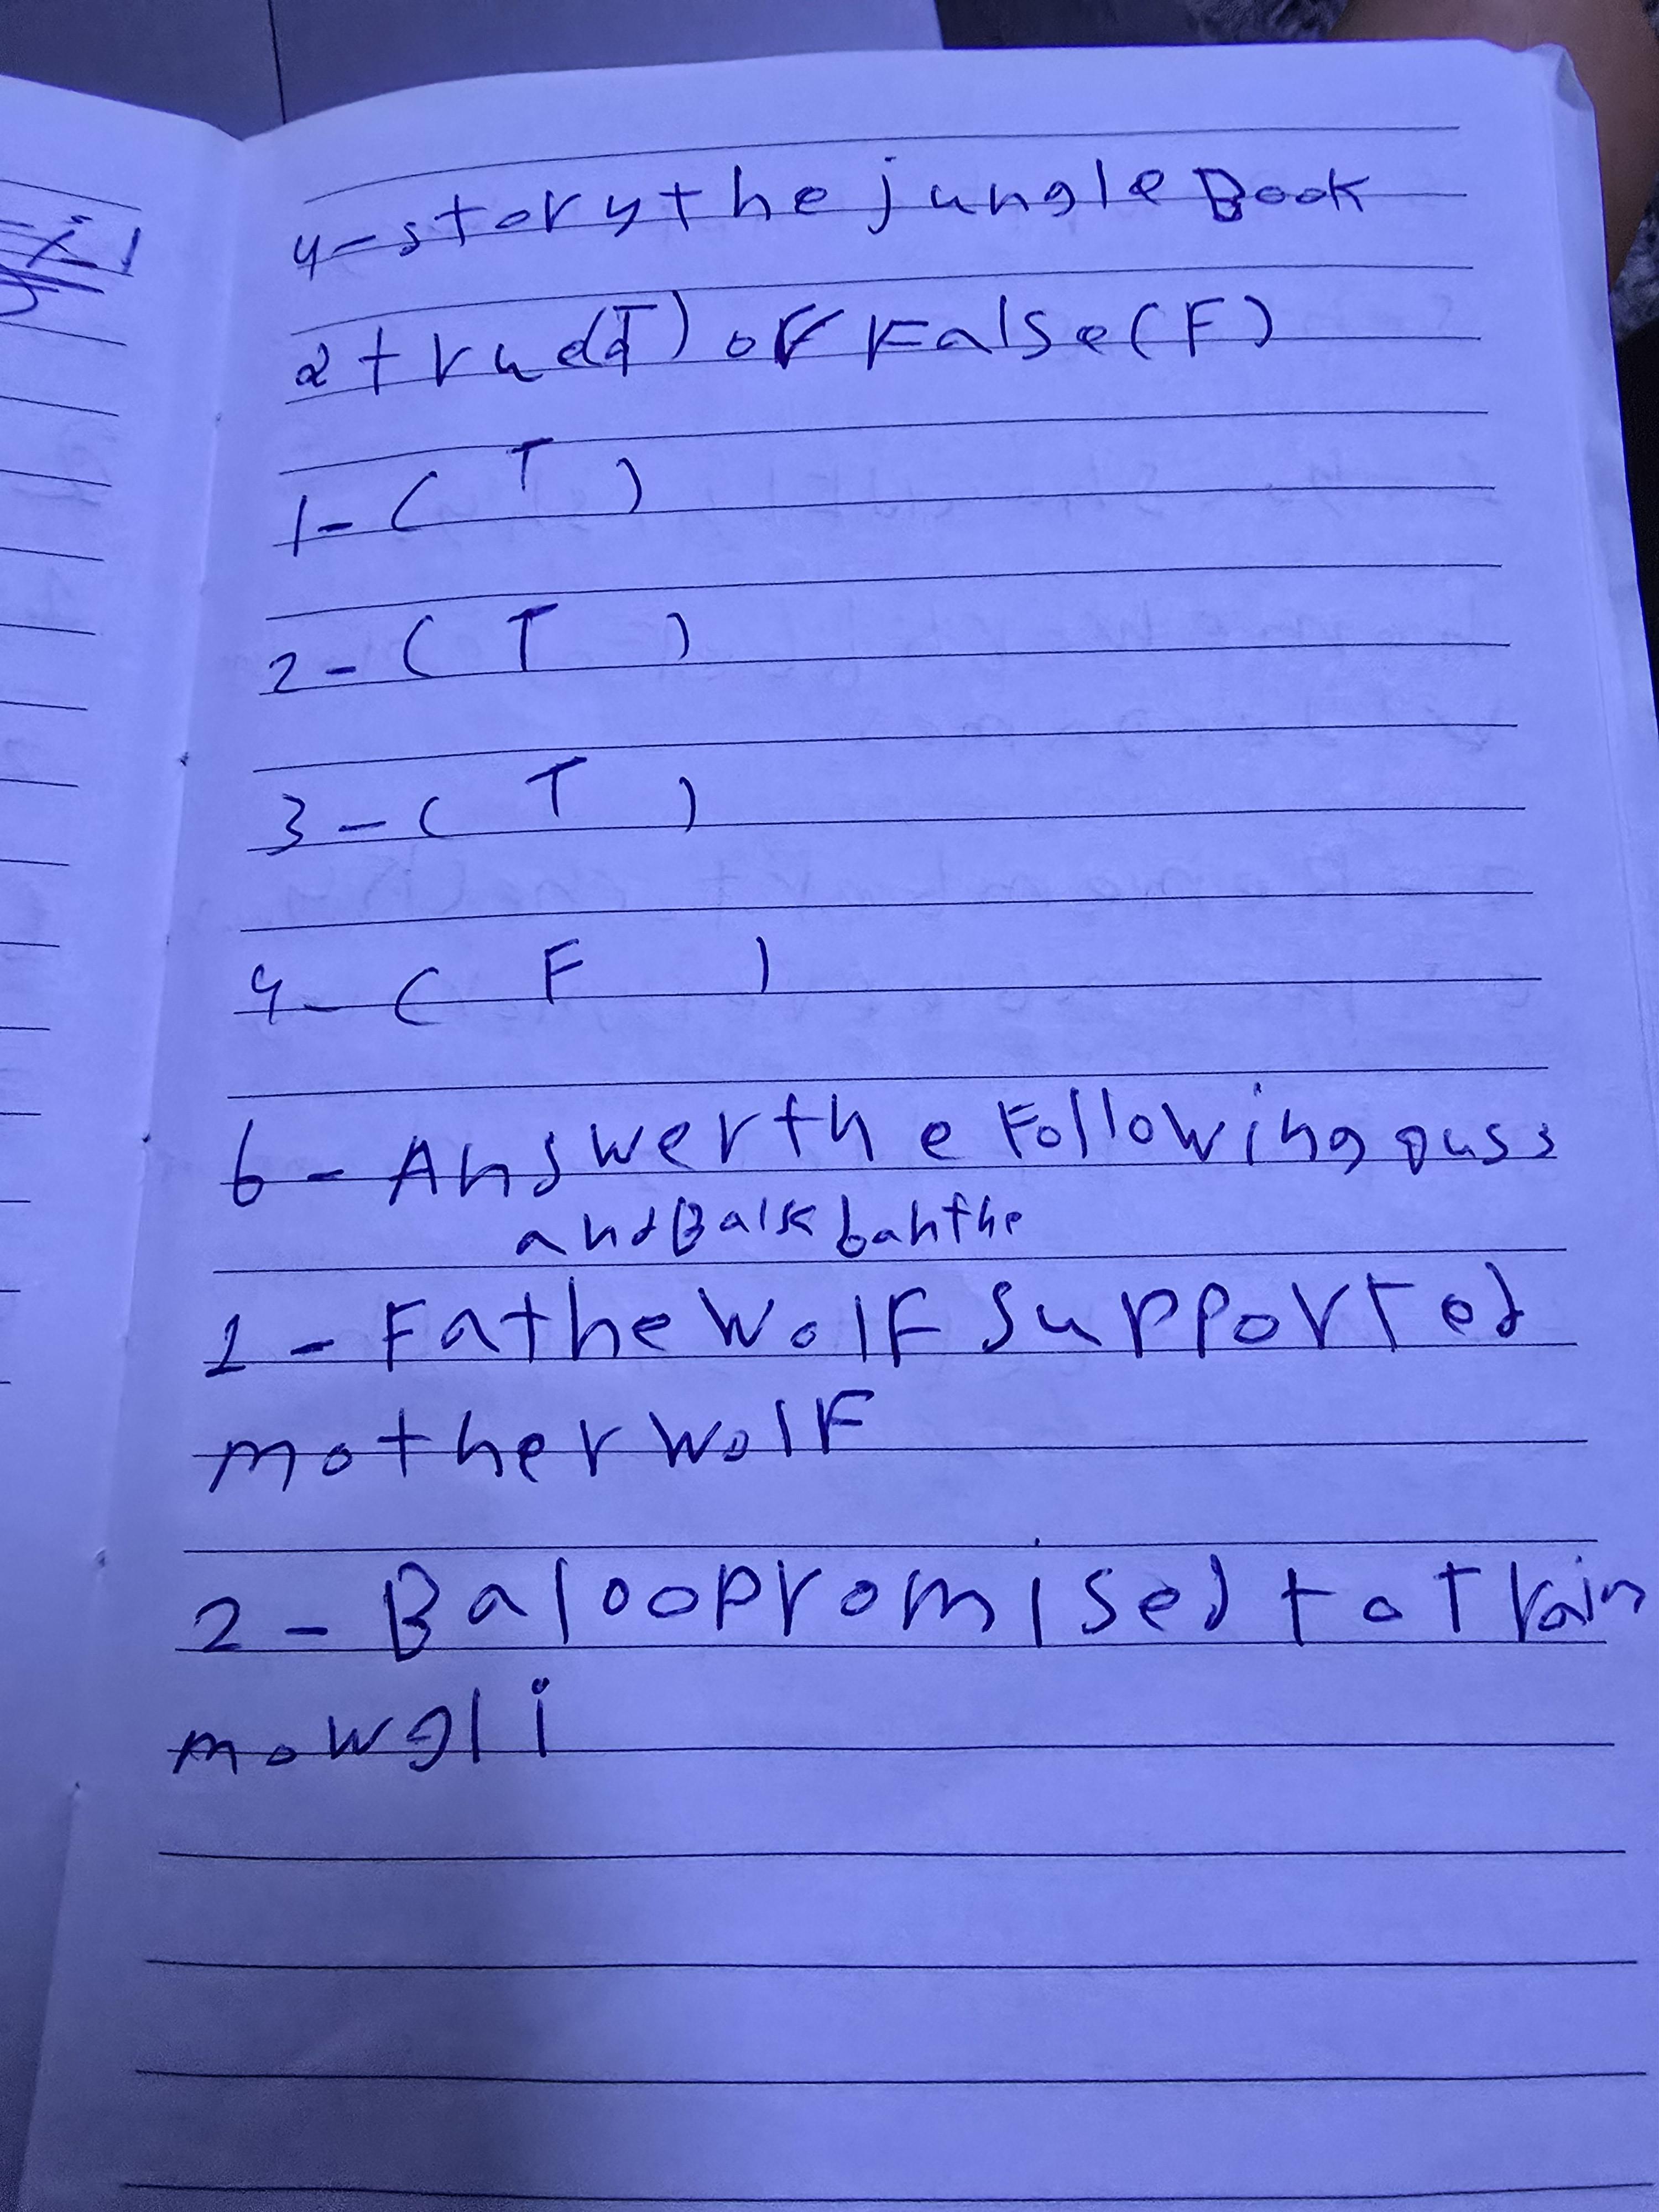 4-story the jungle Book
2 true(T) or False(F)
1-( T )
2-( T )
3-( T )
4-( F )
6-Answer the Following quss
and Balk banthe
1-Fathe Wolf Supported
mother Wolf
2-Baloo Promised to train
mowgli